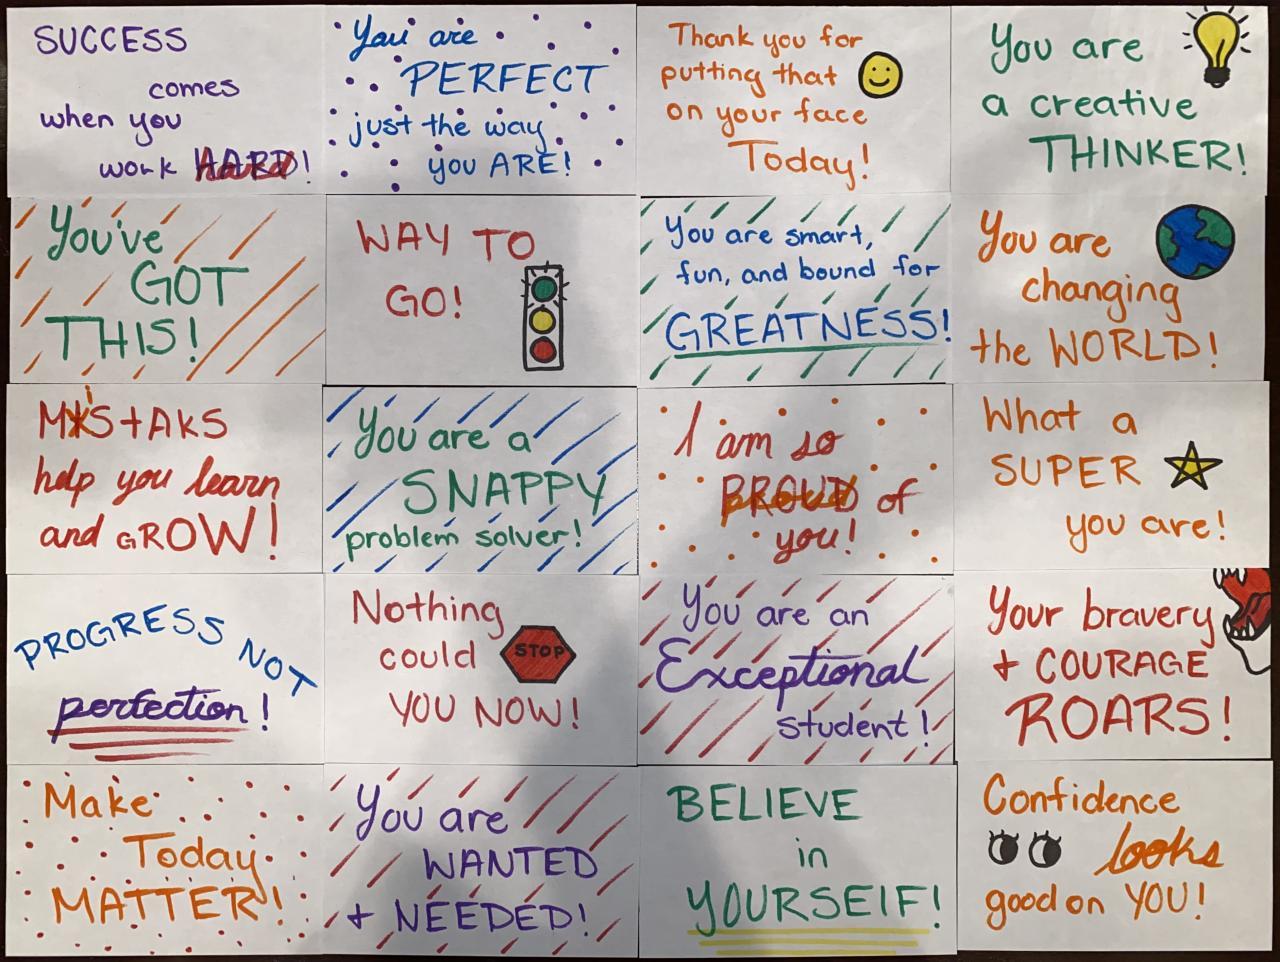 SUCCESS
comes
when you
work HARD!
You are
PERFECT
just the way
you ARE!
Thank you for
putting that
on your face
Today!
You are
a creative
THINKER!
You've
GOT
THIS!
WAY TO
GO!
You are smart,
fun, and bound for
GREATNESS!
You are
changing
the WORLD!
MiS+AKS
help you learn
and GROW!
You are a
SNAPPY
problem solver!
I am so
PROUD of
you!
What a
SUPER
you are!
PROGRESS NOT
perfection!
Nothing
could
STOP
YOU NOW!
You are an
Exceptional
student!
Your bravery
+ COURAGE
ROARS!
Make
Today
MATTER!
You are
WANTED
+ NEEDED!
BELIEVE
in
YOURSElF!
Confidence
looks
good on YOU!